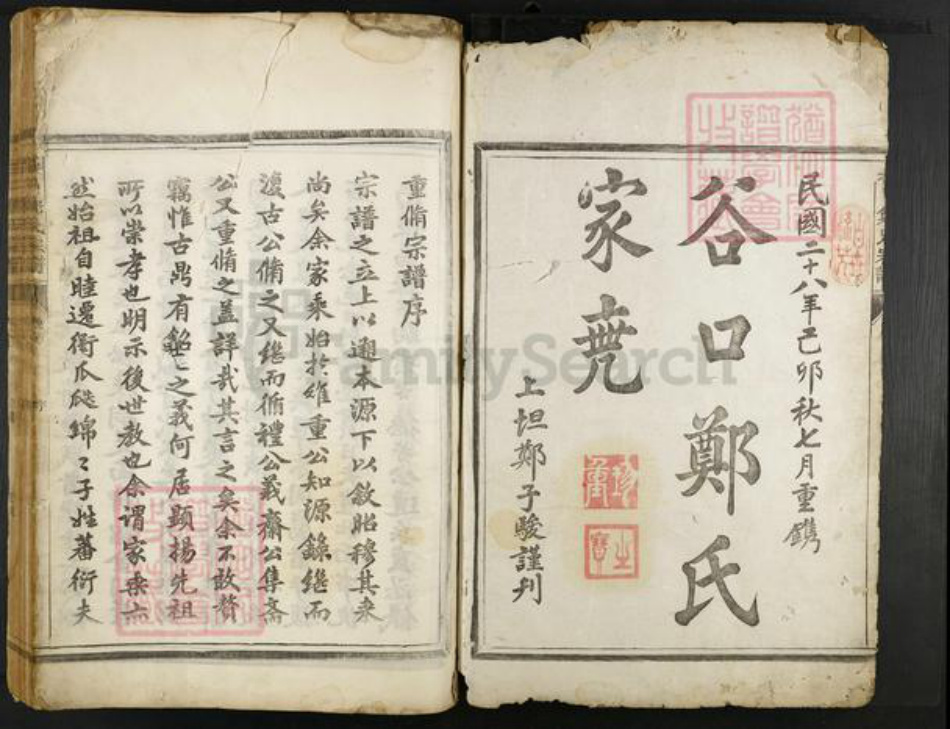 民國二十八年己卯秋七月重鐫
谷口鄭氏
家乘
上坦鄭子駿謹刋
重脩宗譜序
宗譜之立上以遡本源下以敘昭穆其來
尚矣余家乘始於維重公知源錄繼而
復古公脩之又繼而循禮公義齋公集斋
公又重脩之盖詳哉其言之矣余不敢贅
竊惟古鼎有銘〻之義何居顕揚先祖
所以崇孝也明示後世教也余謂家乘亦
然始祖自睦遷衢瓜瓞綿〻子姓蕃衍夫
FamilySearch